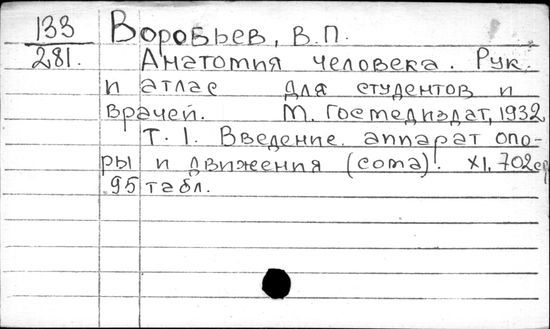 133 Воробьев, В.П.
281. Анатомия человека. Рук.
и атлас для студентов и
врачей. М. Госмедиздат, 1932
Т. 1. Введение. аппарат опо-
ры и движения (сома). XI, 702 ср
95 табл.